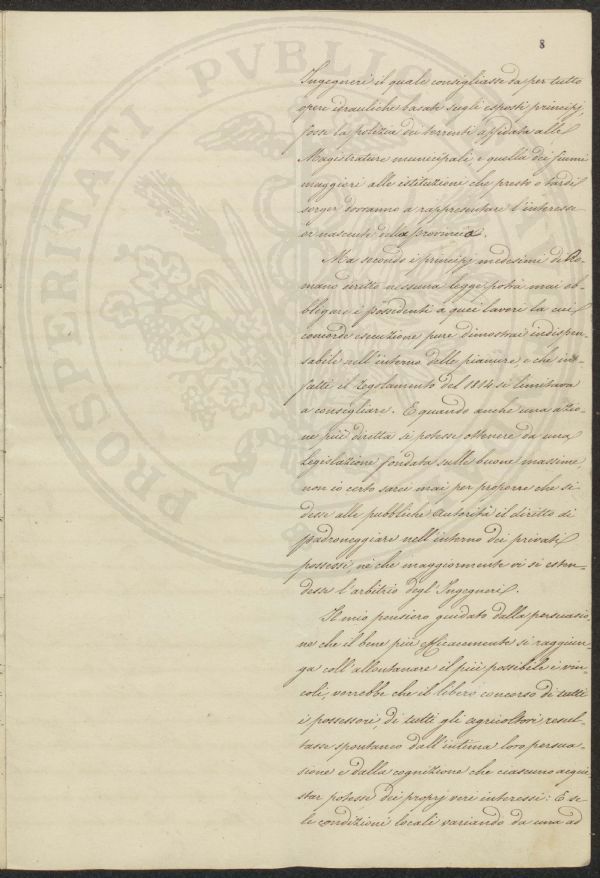 8
Ingegneri il quale consigliasse da per tutto
opere idrauliche basate sugli esposti principj,
fosse la polizia dei torrenti affidata alle
Magistrature municipali, e quella dei fiumi
maggiori alle istituzioni che presto o tardi
sorger dovranno a rappresentare l'interesse
or nascente della provincia.
Ma secondo i principj medesimi di Ro-
mano diritto nessuna legge potrà mai ob-
bligare i possidenti a quei lavori la cui
concorde esecuzione pure dimostrai indispen-
sabile nell'interno delle pianure e che in-
fatti il Regolamento del 1814 si limitava
a consigliare. E quando anche una azio-
ne più diretta si potesse ottenere da una
Legislazione fondata sulle buone massime,
non io certo sarei mai per proporre che si
desse alle pubbliche Autorità il diritto di
padroneggiare nell'interno dei privati
possessi, nè che maggiormente vi si esten-
desse l'arbitrio degl'Ingegneri.
Il mio pensiero guidato dalla persuasio-
ne che il bene più efficacemente si raggiun-
ga coll'allontanare il più possibile i vin-
coli, vorrebbe che il libero concorso di tutti
i possessori, di tutti gli agricoltori, resul-
tasse spontaneo dall'intima loro persua-
sione e dalla cognizione che ciascuno acqui-
star potesse dei proprj veri interessi: E se
le condizioni locali variando da una ad
POSTERITATI
PVBLICAE